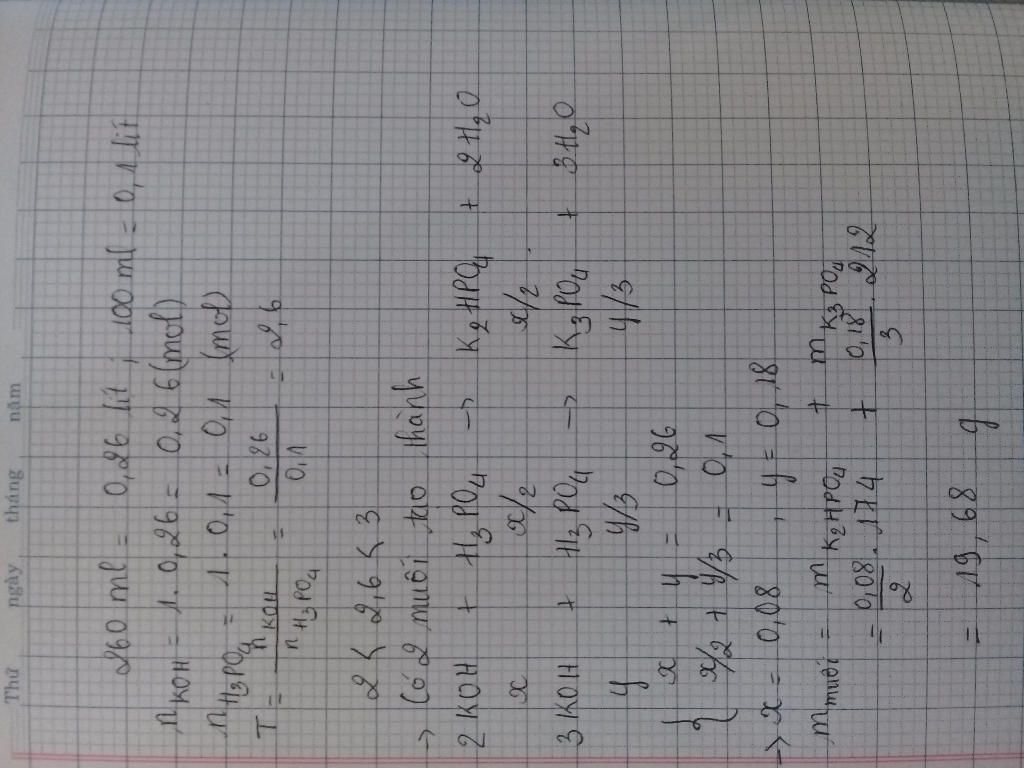 Thứ ngày tháng năm
260 ml = 0,26 lít ; 100 ml = 0,1 lít
nKOH = 1 . 0,26 = 0,26 (mol)
nH3PO4 = 1 . 0,1 = 0,1 (mol)
T = nKOH / nH3PO4 = 0,26 / 0,1 = 2,6
2 < 2,6 < 3
→ Có 2 muối tạo thành
2 KOH + H3PO4 → K2HPO4 + 2H2O
x x/2 x/2
3 KOH + H3PO4 → K3PO4 + 3H2O
y y/3 y/3
{ x + y = 0,26
x/2 + y/3 = 0,1
→ x = 0,08 , y = 0,18
m muối = m K2HPO4 + m K3PO4
= 0,08/2 . 174 + 0,18/3 . 212
= 19,68 g